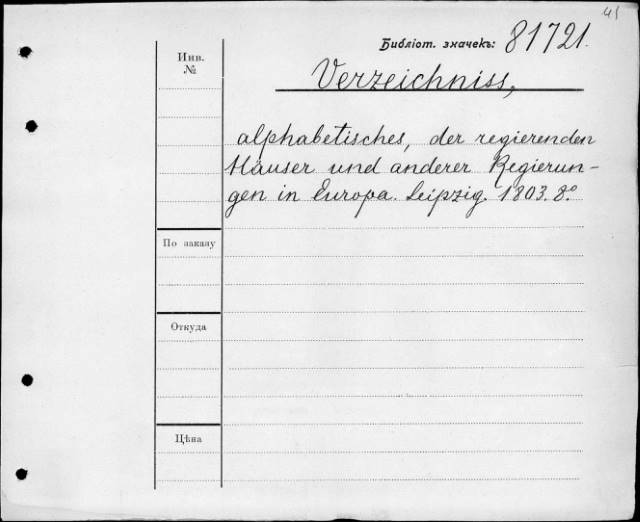 41
Библіот. значекъ: 81721.
Инв.
№
Verzeichniss,
alphabetisches, der regierenden
Häuser und anderer Regierun-
gen in Europa. Leipzig. 1803. 8.º
По заказу
Откуда
Цѣна